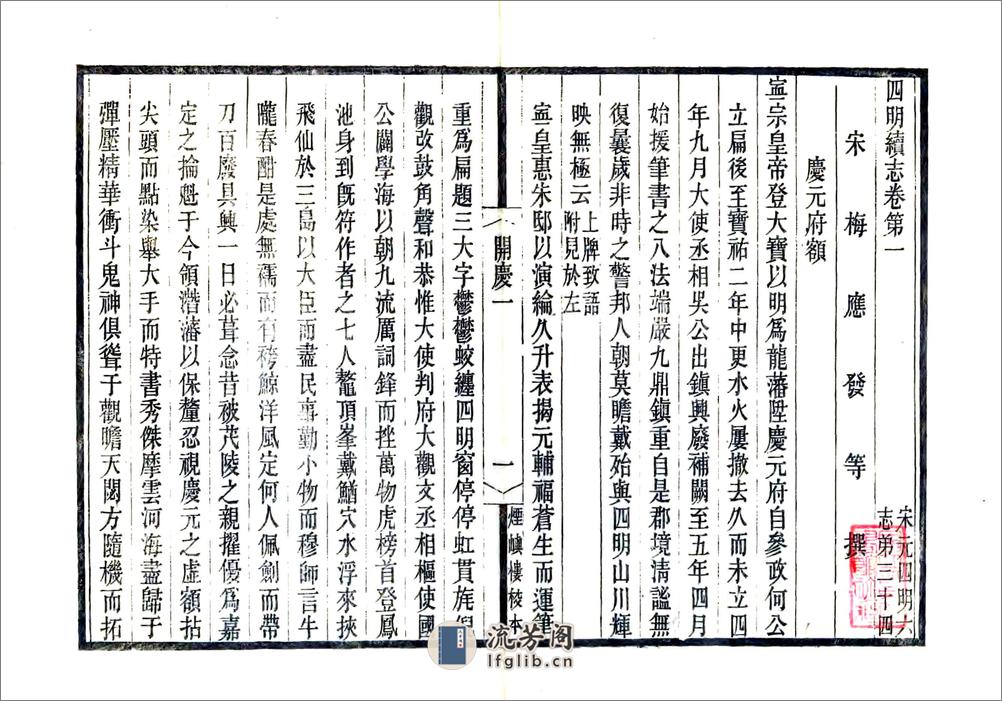 四明續志卷第一
宋元四明六
志第三十四
宋梅應發等撰
慶元府額
寧宗皇帝登大寶以明爲龍藩陞慶元府自參政何公
立扁後至寶祐二年中更水火屢撤去久而未立四
年九月大使丞相吳公出鎮興廢補闕至五年四月
始援筆書之八法端嚴九鼎鎮重自是郡境清謐無
復曩歲非時之警邦人朝莫瞻戴始與四明山川輝
映無極云
上牌致語
附見於左
寧皇惠朱邸以演綸久升表揭元輔福蒼生而運筆
開慶一
一
煙嶼樓校本
重爲扁題三大字鬱鬱蛟纏四明窗停停虹貫旄倪
觀改鼓角聲和恭惟大使判府大觀文丞相樞使國
公闢學海以朝九流厲詞鋒而挫萬物虎榜首登鳳
池身到旣符作者之七人鼇頂峯戴鰌穴水浮來挾
飛仙於三島以大臣而盡民事勤小物而穆師言牛
隴春酣是處無襦而有袴鯨洋風定何人佩劍而帶
刀百廢具興一日必葺念昔被芃陵之親擢優爲嘉
定之掄魁于今領潛藩以保釐忍視慶元之虛額拈
尖頭而點染舉大手而特書秀傑摩雲河海盡歸于
彈壓精華衝斗鬼神俱聳于觀瞻天閟方隨機而拓
流芳阁
lfglib.cn